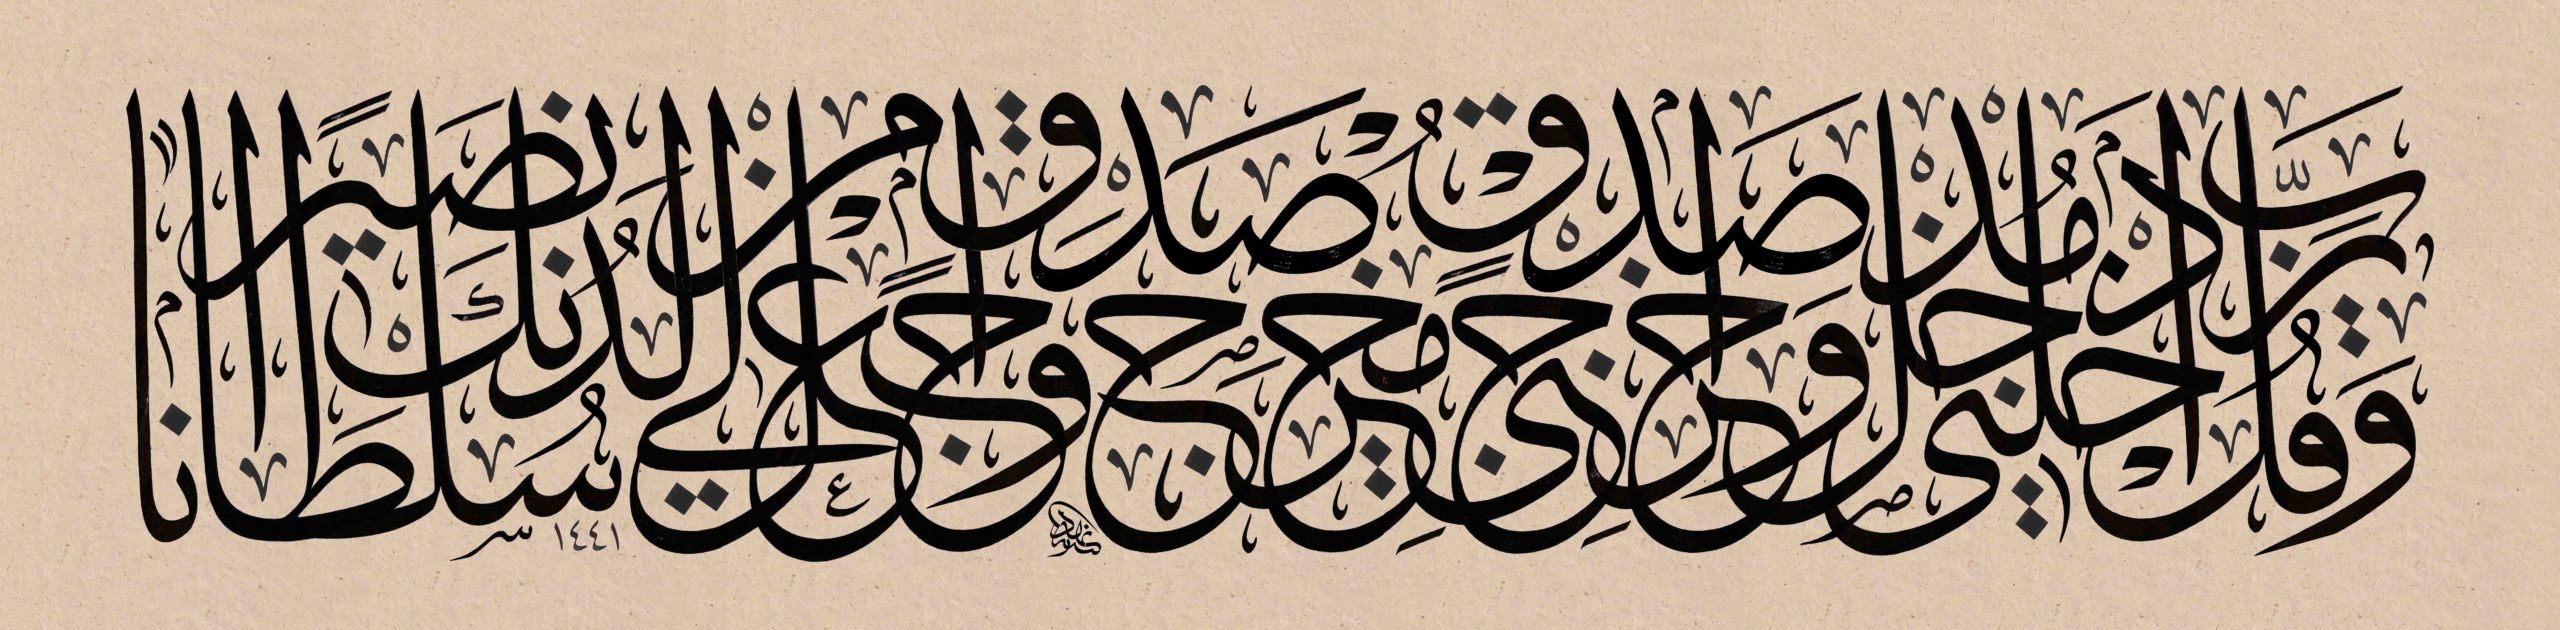 وَقُل رَّبِّ أَدْخِلْنِي مُدْخَلَ صِدْقٍ وَأَخْرِجْنِي مُخْرَجَ صِدْقٍ وَاجْعَل لِّي مِن لَّدُنكَ سُلْطَانًا نَّصِيرًا
١٤٤١